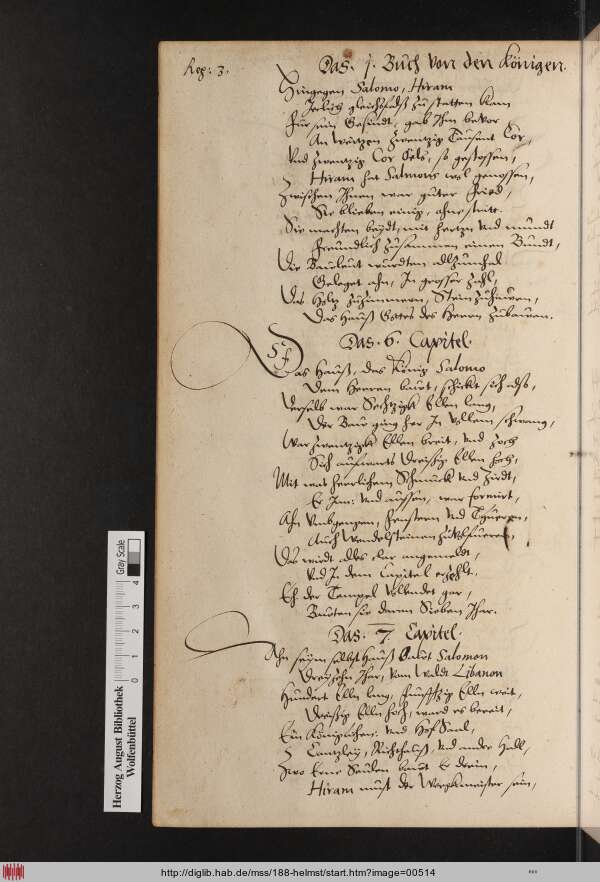 Reg: 3.
Das. 1. Buch von den Königen.
Hingegen Salomo, Hiram
Jerlich gleichfalß zu statten kam
Für sein Gesindt, gab Ihm bevor
An weitzen zwentzig Tausent Cor,
Und zwentzig Cor Oels, so gestossen,
Hiram hat Salmonis wol genossen,
Zwischen Ihnen war guter fried,
Sie blieben einig, ohne
Sie machten beydt, mit hertzen und mundt
freundlich zusammen einen Bundt,
Die Bauleut wurden allzumhal
Geleget ahn, In grosser Zahl,
Das Holtz zuzimmern, Stein zuhauen,
Das Hauß Gottes des Herrn zubauen.
Das. 6. Capitel.
Das Hauß, das König Salomo
Dem Herren baut, schickt sich also,
Derselb war Sechtzigk Ellen lang,
Der Bau ging her In vollem schwang,
War zwentzigk Ellen breit, und hoch
Sich aufwarts dreissig Ellen
Mit was herrlichem Schmuck und Zirdt,
Er Inn: und aussen, war formirt,
Ahn Umbgengen, fenstern und Thueren,
Auch Wendelsteinen
Das wirdt alles clar angemeldt,
Und In dem Capitel erzehlt.
Eh der Tempel vollendet gar,
Bauten sie daran Sieben Jhar.
Das. 7. Capitel.
Ahn seinem selbst Hauß baut Salomon
Dreyzehn Jhar, vom Waldt Libanon
Hundert Ellen lang, funfftzig Ellen weit,
Dreissig Ellen hoch, ward es bereit,
Ein Königlichen: und Hof Saal,
Z Cantzley, Richthauß, und ander Hall,
Zwo Erne Seulen baut Er drein,
Hiram must der Werckmeister sein,
Herzog August Bibliothek
Wolfenbüttel
Gray Scale
0 1 2 3 4
http://diglib.hab.de/mss/188-helmst/start.htm?image=00514